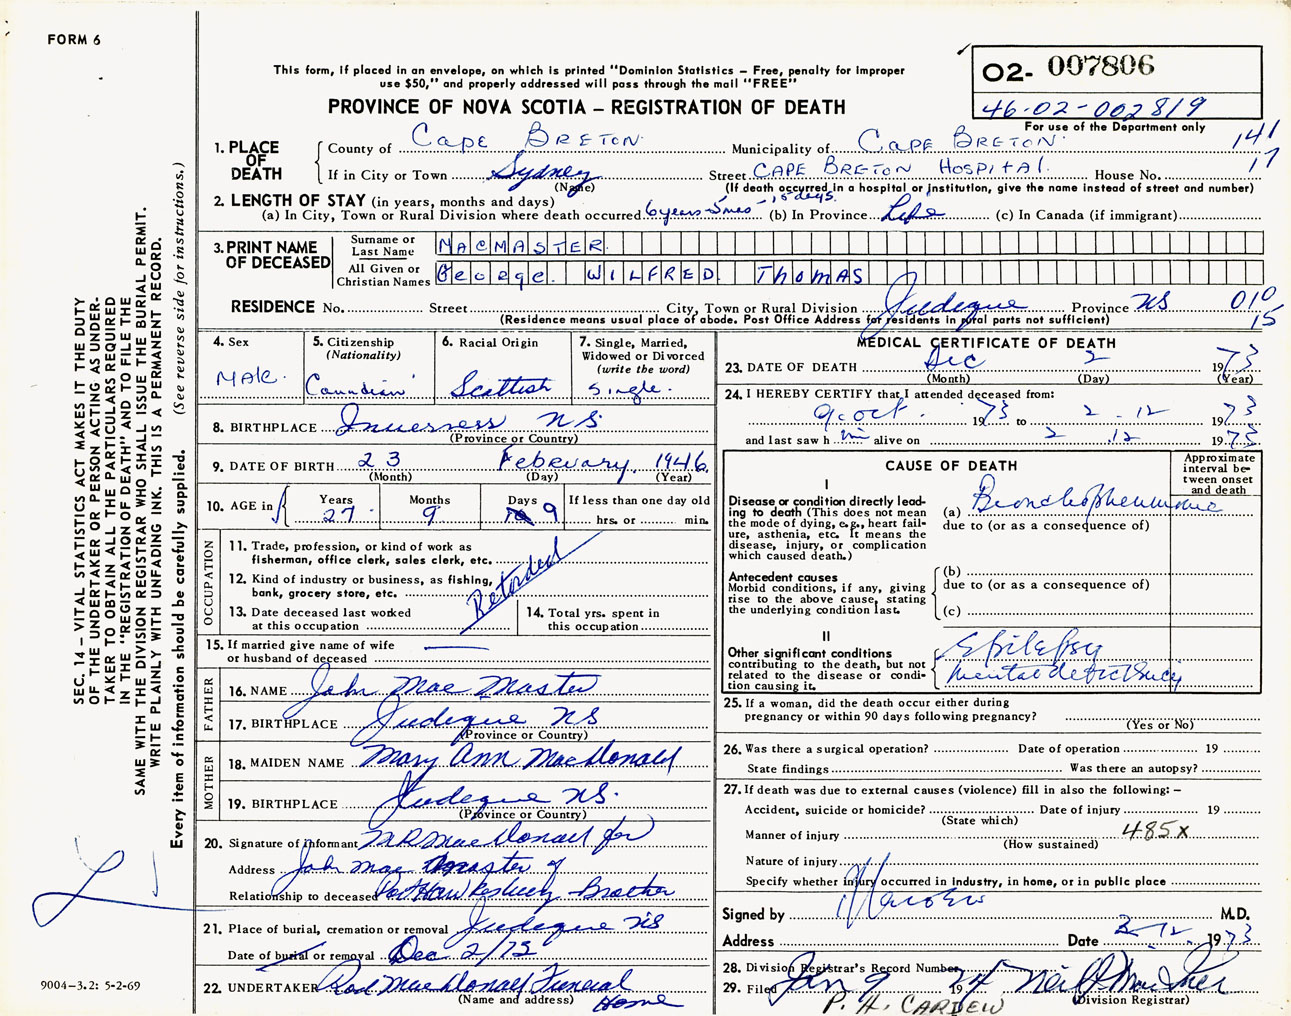 FORM 6
This form, if placed in an envelope, on which is printed "Dominion Statistics – Free, penalty for improper
use $50," and properly addressed will pass through the mail "FREE"
PROVINCE OF NOVA SCOTIA – REGISTRATION OF DEATH
O2- 007806
46-02-002819
For use of the Department only
141
17
1. PLACE OF DEATH
County of CAPE BRETON Municipality of CAPE BRETON
If in City or Town Sydney Street CAPE BRETON HOSPITAL House No.
(Name) (If death occurred in a hospital or institution, give the name instead of street and number)
2. LENGTH OF STAY (in years, months and days)
(a) In City, Town or Rural Division where death occurred 6 years-5mos-15 days. (b) In Province Life (c) In Canada (if immigrant)
3. PRINT NAME OF DECEASED
Surname or Last Name MACMASTER
All Given or Christian Names George. WILFRED THOMAS
RESIDENCE No. Street City, Town or Rural Division Judeque Province NS 010
15
(Residence means usual place of abode. Post Office Address for residents in rural parts not sufficient)
4. Sex
MALE.
5. Citizenship
(Nationality)
Canadian
6. Racial Origin
Scottish
7. Single, Married,
Widowed or Divorced
(write the word)
Single.
8. BIRTHPLACE Inverness NS
(Province or Country)
9. DATE OF BIRTH 23 Febevary. 1946.
(Month) (Day) (Year)
10. AGE in
Years 27
Months 9
Days 9
If less than one day old
hrs. or min.
OCCUPATION
11. Trade, profession, or kind of work as
fisherman, office clerk, sales clerk, etc.
12. Kind of industry or business, as fishing,
bank, grocery store, etc.
Retarded
13. Date deceased last worked
at this occupation
14. Total yrs. spent in
this occupation
15. If married give name of wife
or husband of deceased
FATHER
16. NAME John Mac Master
17. BIRTHPLACE Judeque NS
(Province or Country)
MOTHER
18. MAIDEN NAME Mary Ann MacDonald
19. BIRTHPLACE Judeque NS.
(Province or Country)
20. Signature of informant MR MacDonald for
Address John Mac Master of
Relationship to deceased Port Hawkesbury - Brother
21. Place of burial, cremation or removal Judeque NS
Date of burial or removal Dec 2/73
22. UNDERTAKER Rod MacDonald Funeral
(Name and address) Home
MEDICAL CERTIFICATE OF DEATH
23. DATE OF DEATH Dec 2 1973
(Month) (Day) (Year)
24. I HEREBY CERTIFY that I attended deceased from:
9 oct. 1973 to 2.12 1973
and last saw h im alive on 2.12 1973
CAUSE OF DEATH
Approximate
interval be-
tween onset
and death
I
Disease or condition directly lead-
ing to death (This does not mean
the mode of dying, e.g., heart fail-
ure, asthenia, etc. It means the
disease, injury, or complication
which caused death.)
(a) Bronchopneumonia
due to (or as a consequence of)
Antecedent causes
Morbid conditions, if any, giving
rise to the above cause, stating
the underlying condition last.
(b)
due to (or as a consequence of)
(c)
II
Other significant conditions
contributing to the death, but not
related to the disease or condi-
tion causing it.
Epilepsy
Mental deficiency
25. If a woman, did the death occur either during
pregnancy or within 90 days following pregnancy?
(Yes or No)
26. Was there a surgical operation? Date of operation 19
State findings Was there an autopsy?
27. If death was due to external causes (violence) fill in also the following: –
Accident, suicide or homicide? Date of injury 19
(State which)
Manner of injury 485x
(How sustained)
Nature of injury
Specify whether injury occurred in industry, in home, or in public place
Signed by M.D.
Address Date 2-12 1973
28. Division Registrar's Record Number
29. Filed Jan 9 1974
(Division Registrar)
P. H. CARDEW
SEC. 14 – VITAL STATISTICS ACT MAKES IT THE DUTY
OF THE UNDERTAKER OR PERSON ACTING AS UNDER-
TAKER TO OBTAIN ALL THE PARTICULARS REQUIRED
IN THE "REGISTRATION OF DEATH" AND TO FILE THE
SAME WITH THE DIVISION REGISTRAR WHO SHALL ISSUE THE BURIAL PERMIT.
WRITE PLAINLY WITH UNFADING INK. THIS IS A PERMANENT RECORD.
Every item of information should be carefully supplied. (See reverse side for instructions.)
9004-3.2: 5-2-69